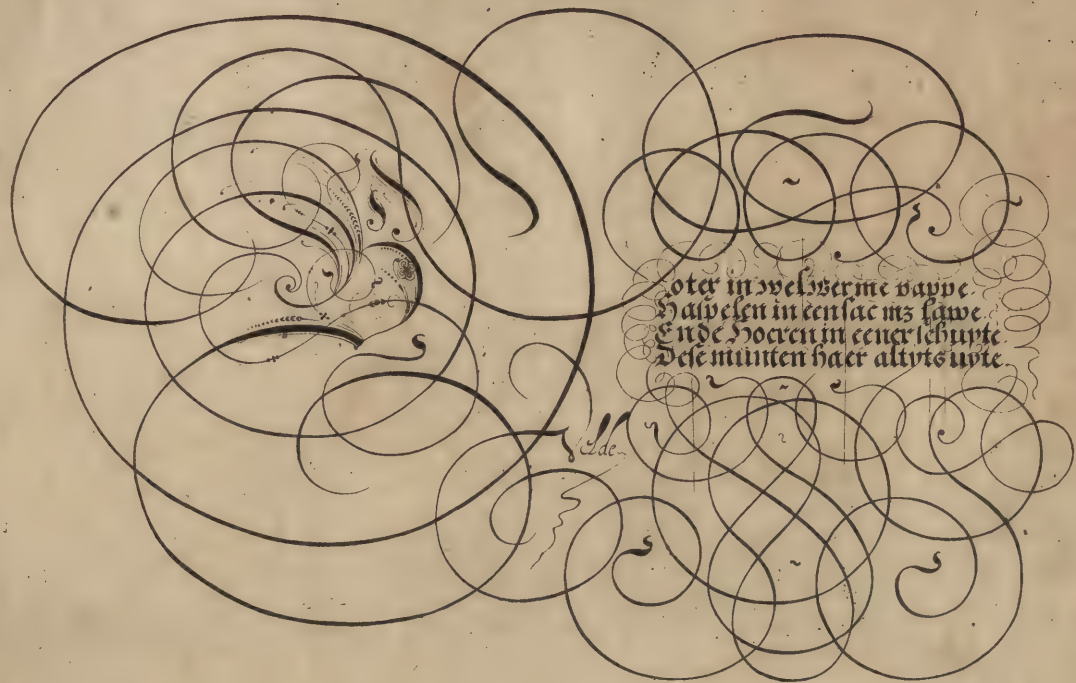 oter in wel werme pappe.
Haspelen in een sac mz
Ende Hoeren in eener schuyte.
Dese munten haer altyts uyte.
Velde